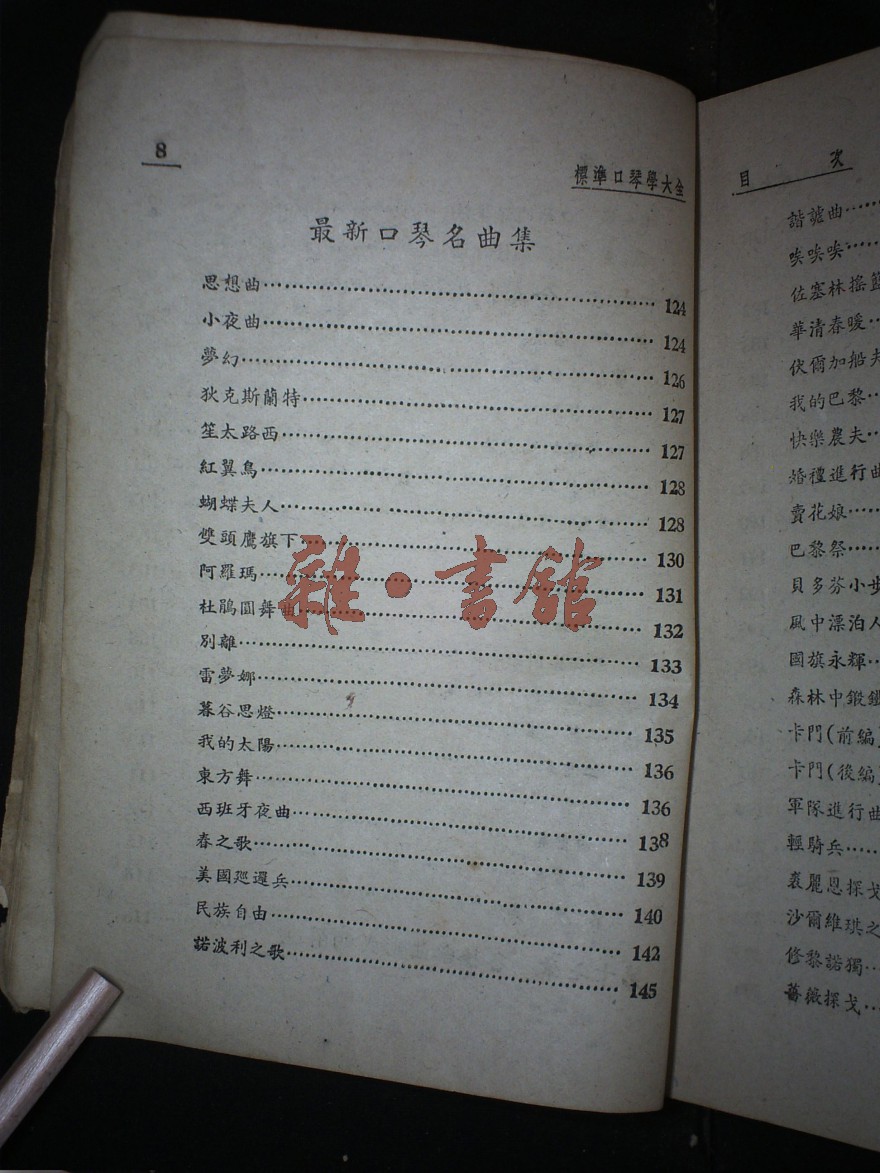 8
標準口琴學大全
最新口琴名曲集
思想曲 124
小夜曲 124
夢幻 126
狄克斯蘭特 127
笙太路西 127
紅翼鳥 128
蝴蝶夫人 128
雙頭鷹旗下 130
阿羅瑪 131
杜鵑圓舞曲 132
別離 133
雷夢娜 134
暮谷思燈 135
我的太陽 136
東方舞 136
西班牙夜曲 138
春之歌 139
美國廵邏兵 140
民族自由 142
諾波利之歌 145
雜·書館
目次
諧謔曲
唉唉唉
佐塞林搖籃
華清春暖
伏爾加船夫
我的巴黎
快樂農夫
婚禮進行曲
賣花娘
巴黎祭
貝多芬小步
風中漂泊人
國旗永輝
森林中鍛鐵
卡門(前編)
卡門(後編)
軍隊進行曲
輕騎兵
裘麗恩探戈
沙爾維琪之
修黎諾獨
薔薇探戈